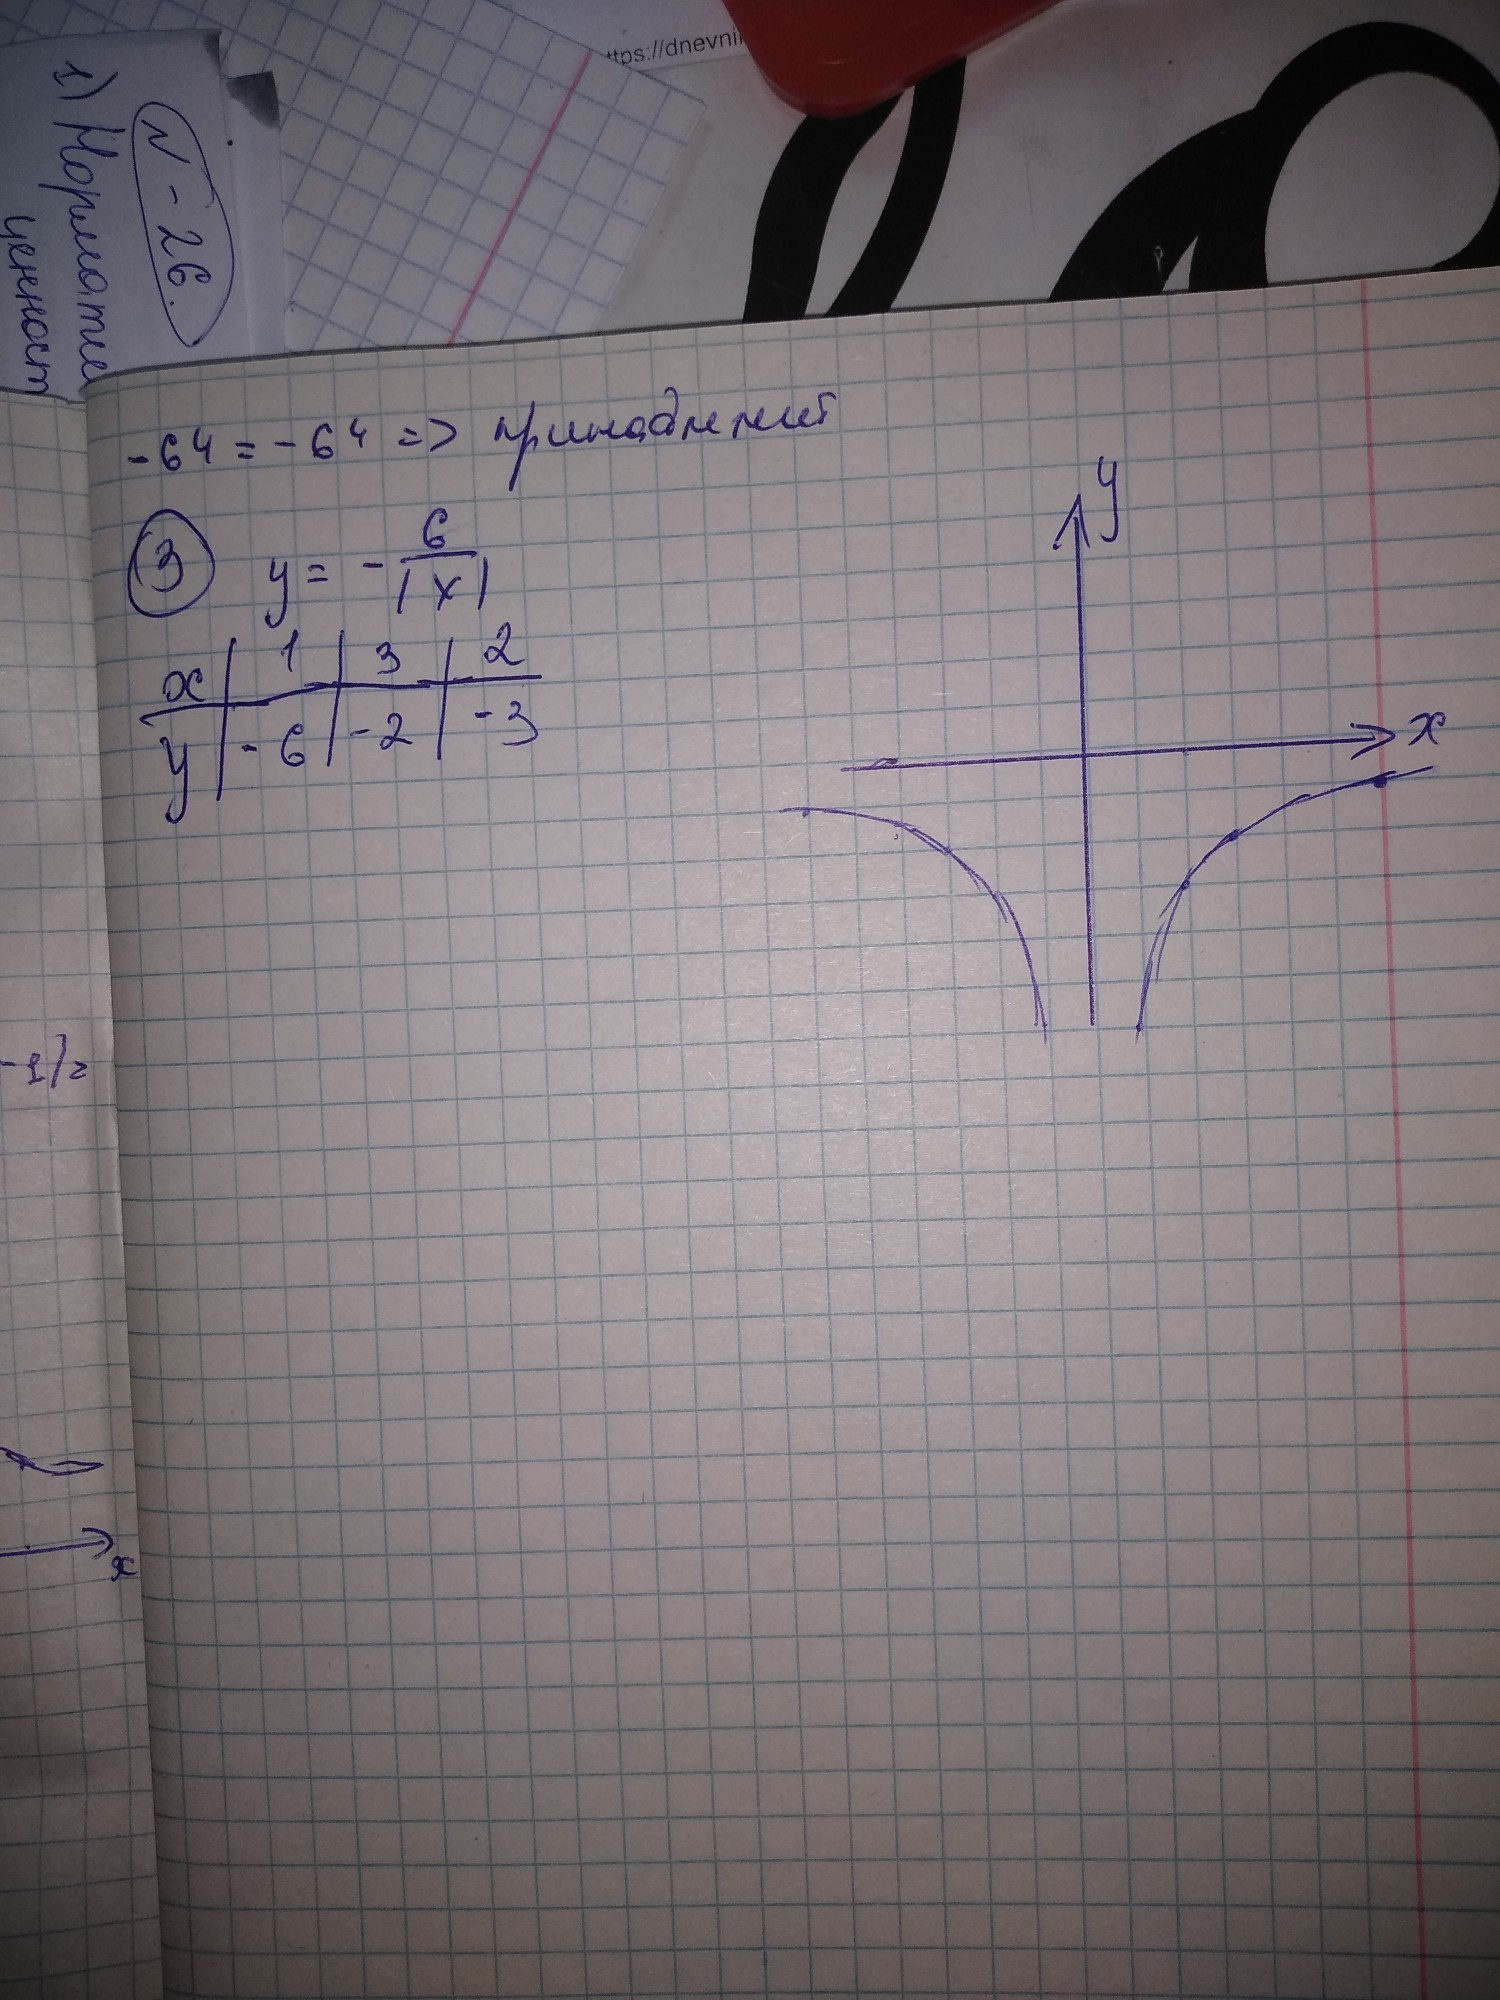 ttps://dnevni
N-26.
1) Нормати
ценност
-64 = -64 => принадлежит
3 y = - 6/|x|
x | 1 | 3 | 2
y | -6 | -2 | -3
y
x
-1/2
x